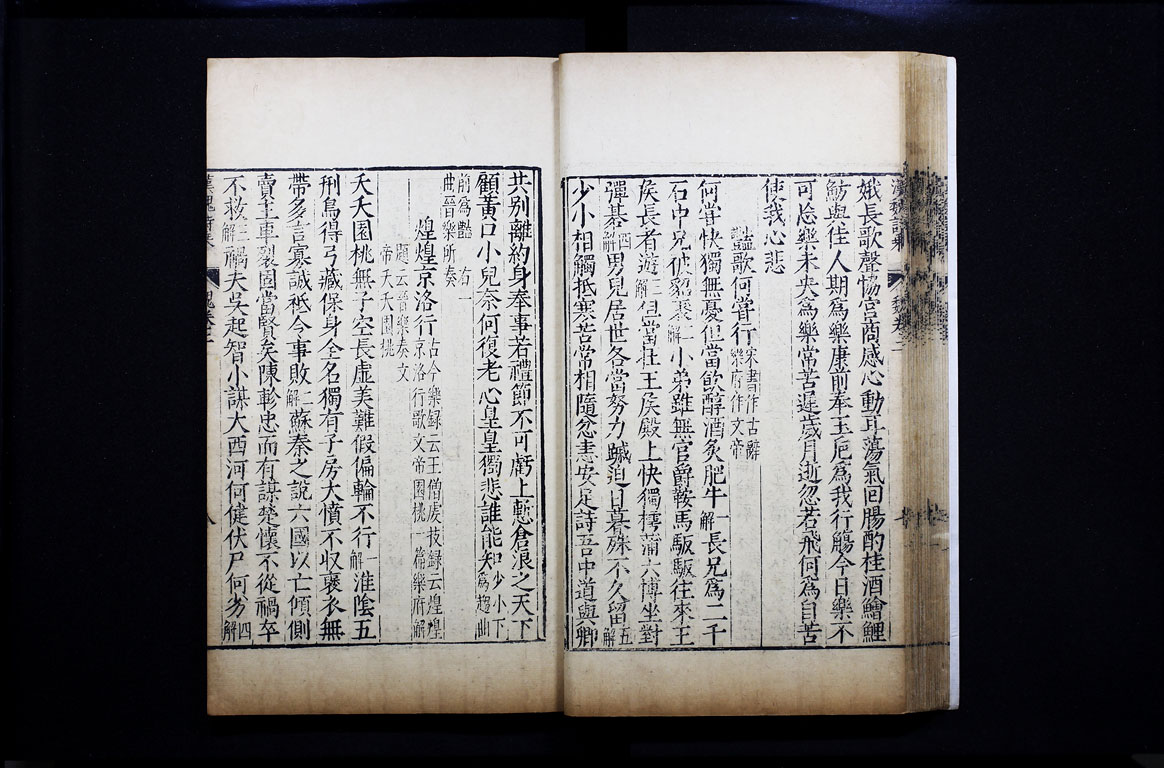 娥長歌聲愓宮商感心動耳蕩氣回腸酌桂酒鱠鯉
魴與佳人期爲樂康前奉玉巵爲我行觴今日樂不
可忘樂未央爲樂常苦遲歲月逝忽若飛何爲自苦
使我心悲
豔歌何嘗行宋書作古辭樂府作文帝
何嘗快獨無憂但當飲醇酒炙肥牛一解長兄爲二千
石中兄彼貂裘二解小弟雖無官爵鞍馬馺馺往來王
侯長者遊三解但當在王侯殿上快獨樗蒲六博坐對
彈碁四解男兒居世各當努力蹴迫日暮殊不久留五解
少小相觸抵寒苦常相隨忿恚安足諍吾中道與卿
共別離約身奉事若禮節不可虧上慙倉浪之天下
顧黃口小兒奈何復老心皇皇獨悲誰能知口少小下爲趨曲
前爲豔 右一
曲晉樂所奏
煌煌京洛行古今樂録云王僧虔技録云煌煌京洛行歌文帝園桃一篇樂府解
題云晉樂奏文帝夭夭園桃
夭夭園桃無子空長虛美難假偏輪不行一解淮陰五
刑鳥得弓藏保身全名獨有子房大憤不收褒衣無
帶多言寡誠祗令事敗二解蘇秦之說六國以亡傾側
賣主車裂固當賢矣陳軫忠而有謀楚懷不從禍卒
不救三解禍夫吳起智小謀大西河何健伏尸何劣四解
漢魏詩乘
魏卷二
八